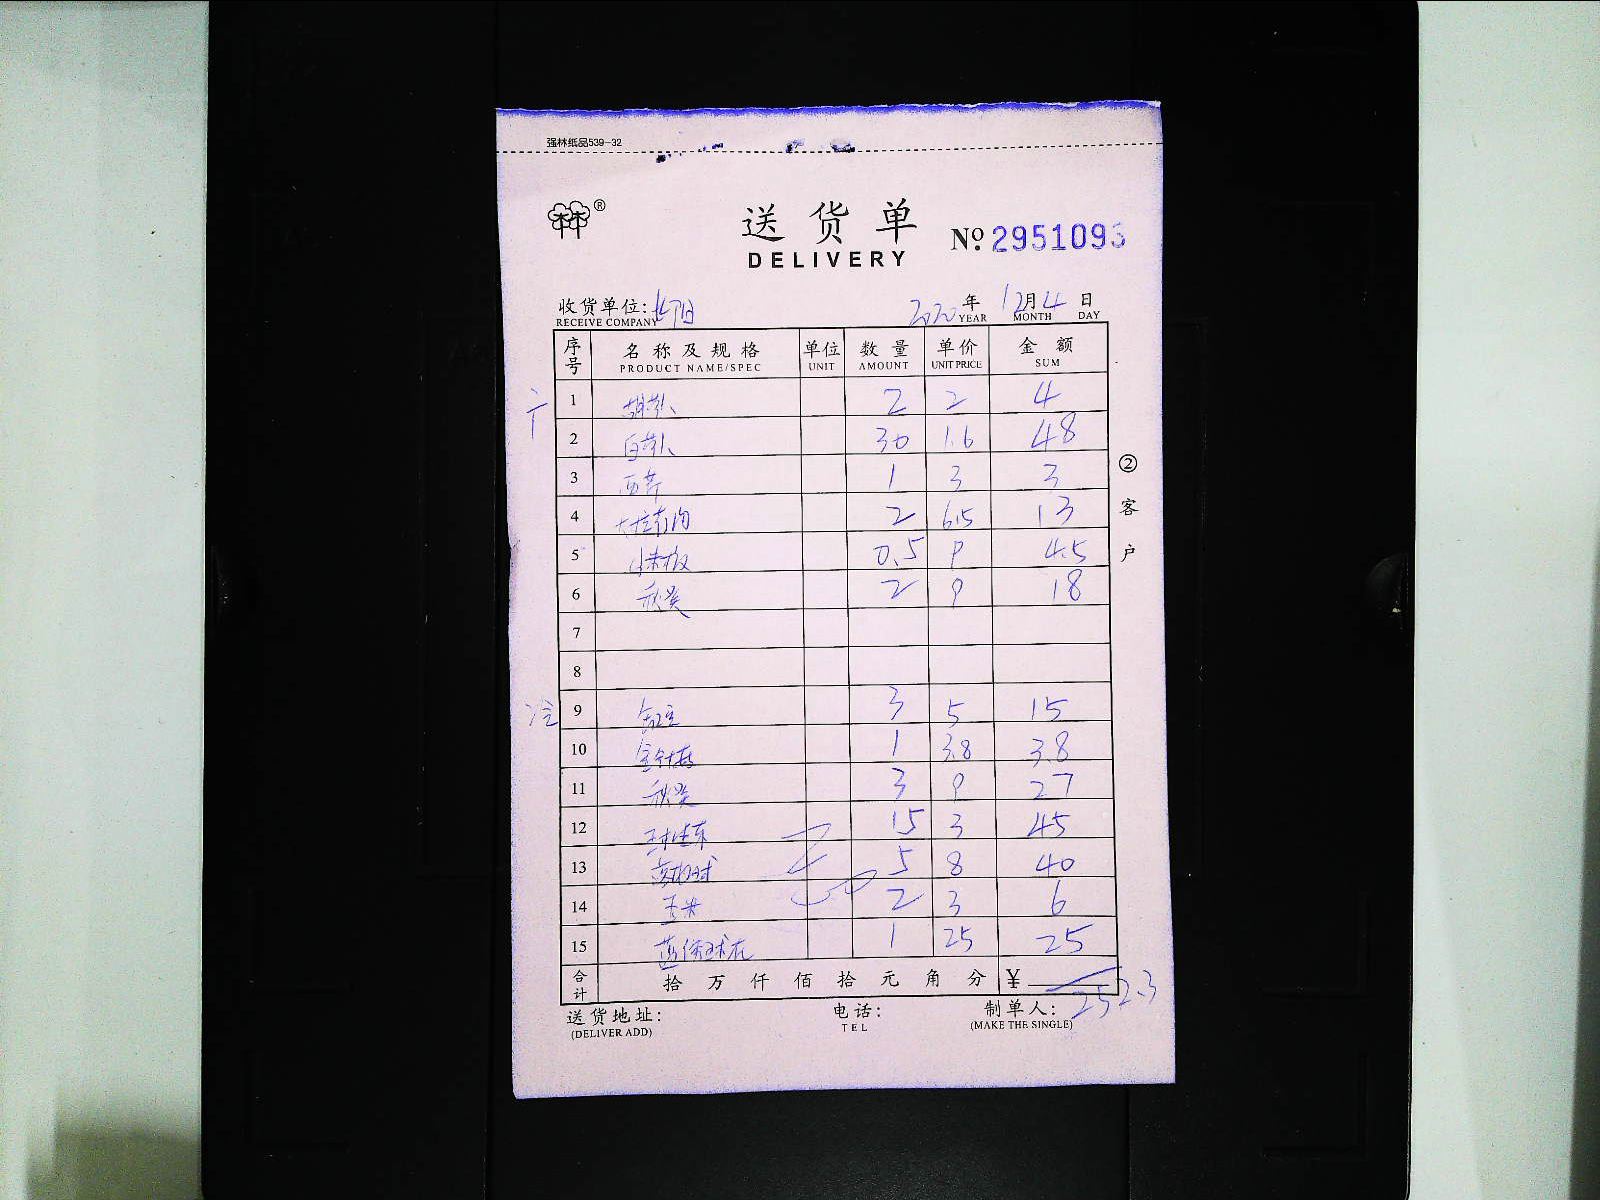 强林纸品539-32
®
送货单
DELIVERY
№ 2951093
收货单位: 2020年 12月 4日
RECEIVE COMPANY YEAR MONTH DAY
序号 名称及规格 单位 数量 单价 金额
PRODUCT NAME/SPEC UNIT AMOUNT UNIT PRICE SUM
1 胡萝卜 2 2 4
2 白萝卜 30 1.6 48
3 西芹 1 3 3
4 2 6.5 13
5 小米椒 0.5 9 4.5
6 秋葵 2 9 18
7
8
9 3 5 15
10 金针菇 1 3.8 3.8
11 秋葵 3 9 27
12 15 3 45
13 5 8 40
14 玉米 2 3 6
15 1 25 25
合计 拾万仟佰拾元角分 ¥ 252.3
②客户
送货地址: 电话: 制单人:
(DELIVER ADD) TEL (MAKE THE SINGLE)